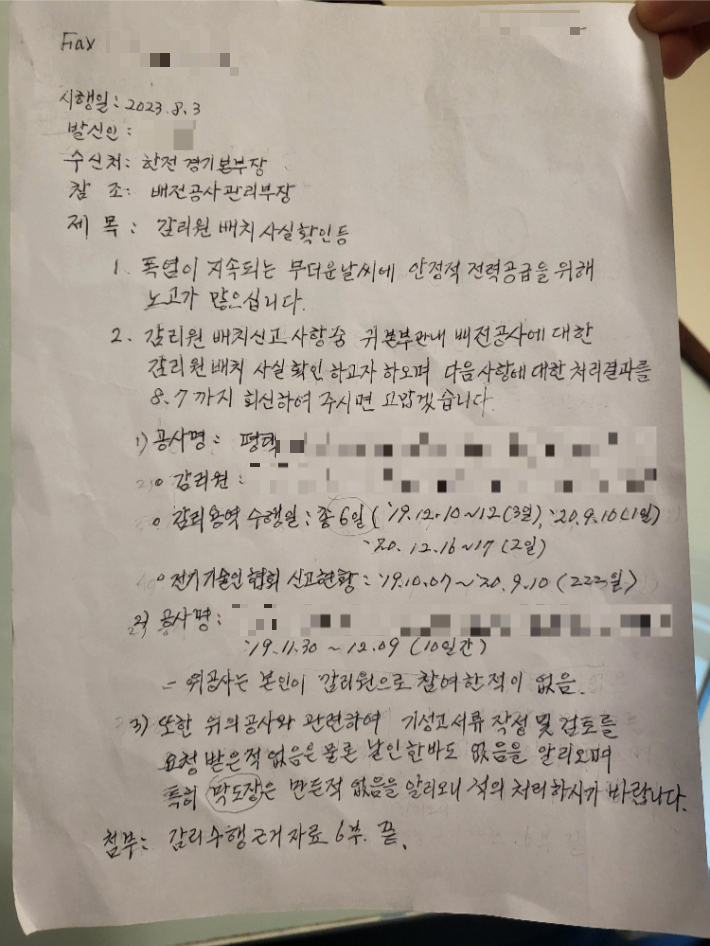 Fax
시행일: 2023.8.3
발신인:
수신처: 한전 경기본부장
참 조: 배전공사관리부장
제 목: 감리원 배치 사실확인등
1. 폭염이 지속되는 무더운날씨에 안정적 전력공급을 위해
노고가 많으십니다.
2. 감리원 배치신고 사항중 귀본부관내 배전공사에 대한
감리원배치 사실확인하고자 하오며 다음사항에 대한 처리결과를
8.7까지 회신하여 주시면 고맙겠습니다.
1) 공사명: 평택
○ 감리원:
○ 감리용역 수행일: 총6일('19.12.10~12(3일), '20.9.10(1일)
'20.12.16~17(2일)
○ 전기기술인협회 신고현황: '19.10.07~'20.9.10(222일)
2) 공사명:
'19.11.30 ~ 12.09 (10일간)
- 위공사는 본인이 감리원으로 참여한적이 없음.
3) 또한 위의공사와 관련하여 기성고서류 작성 및 검토를
요청 받은적 없음은 물론 날인한바도 없음을 알리오며
특히 막도장은 만든적 없음을 알리오니 적의 처리하시기 바랍니다.
첨부: 감리수행근거자료 6부. 끝.